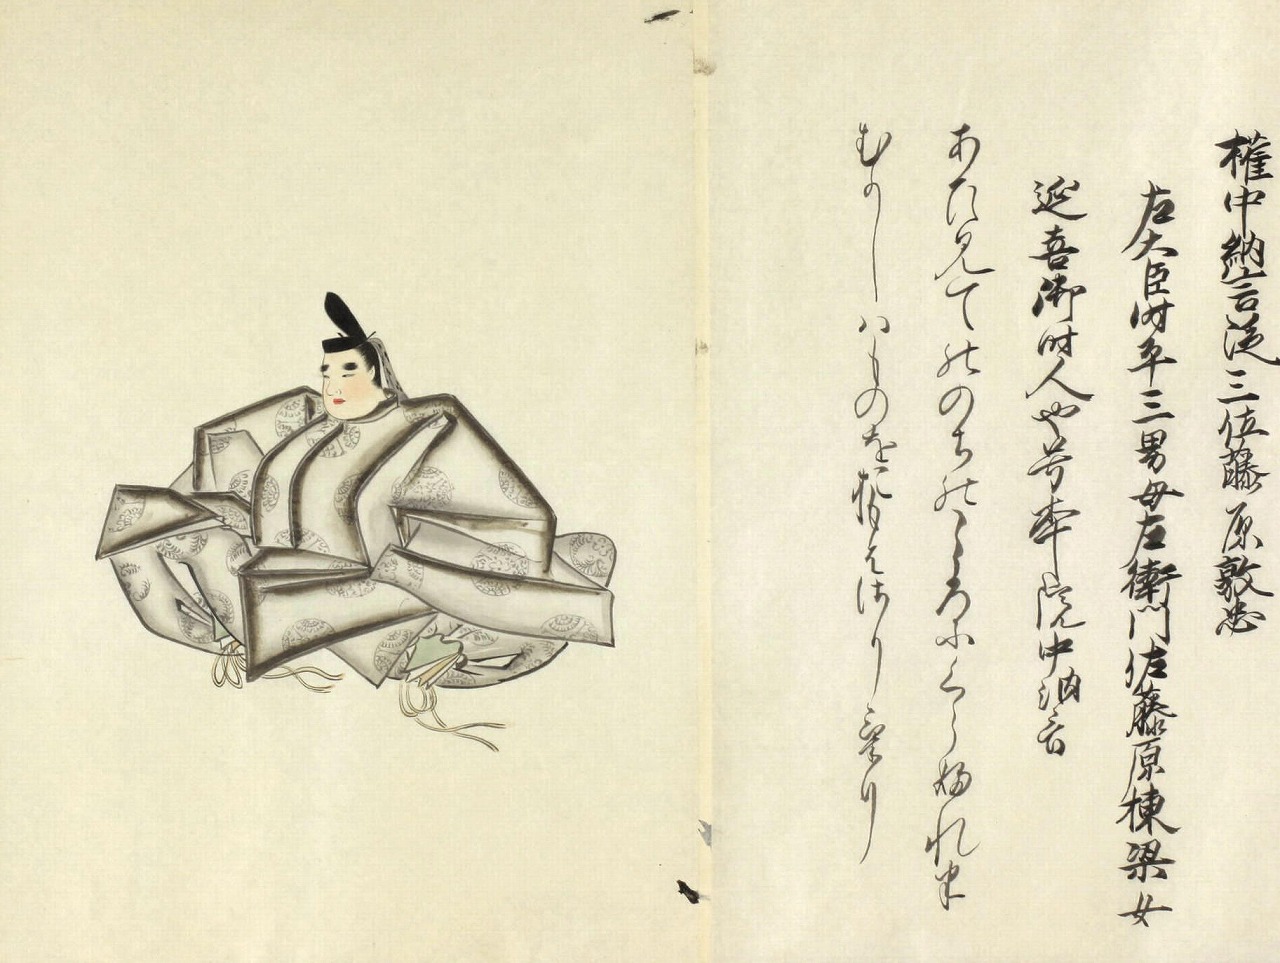 權中納言従三位藤原敦忠
左大臣時平三男母左衛門佐藤原棟梁女
延喜御時人也号本院中納言
あひ見てののちのこゝろにくらふれは
むかしはものをおもはさりけり